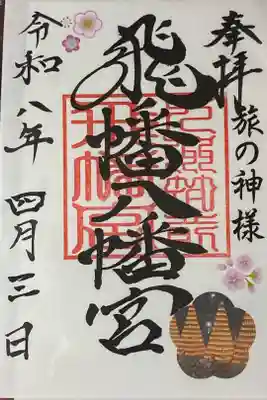 奉拝
旅の神様
飛幡八幡宮
令和八年四月三日